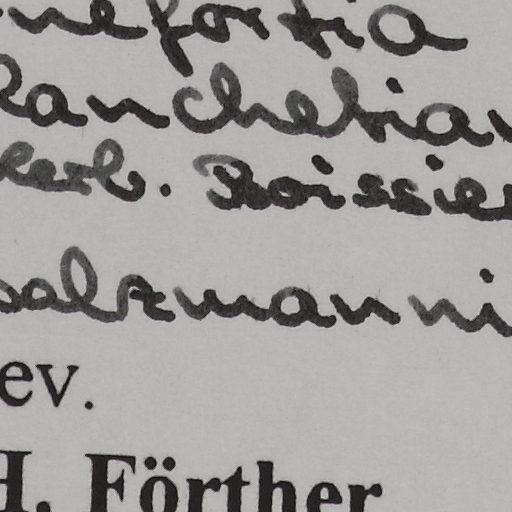 nefortia
Ranchetian
Herb. Boissier
salzmanni
ev.
H. Förther